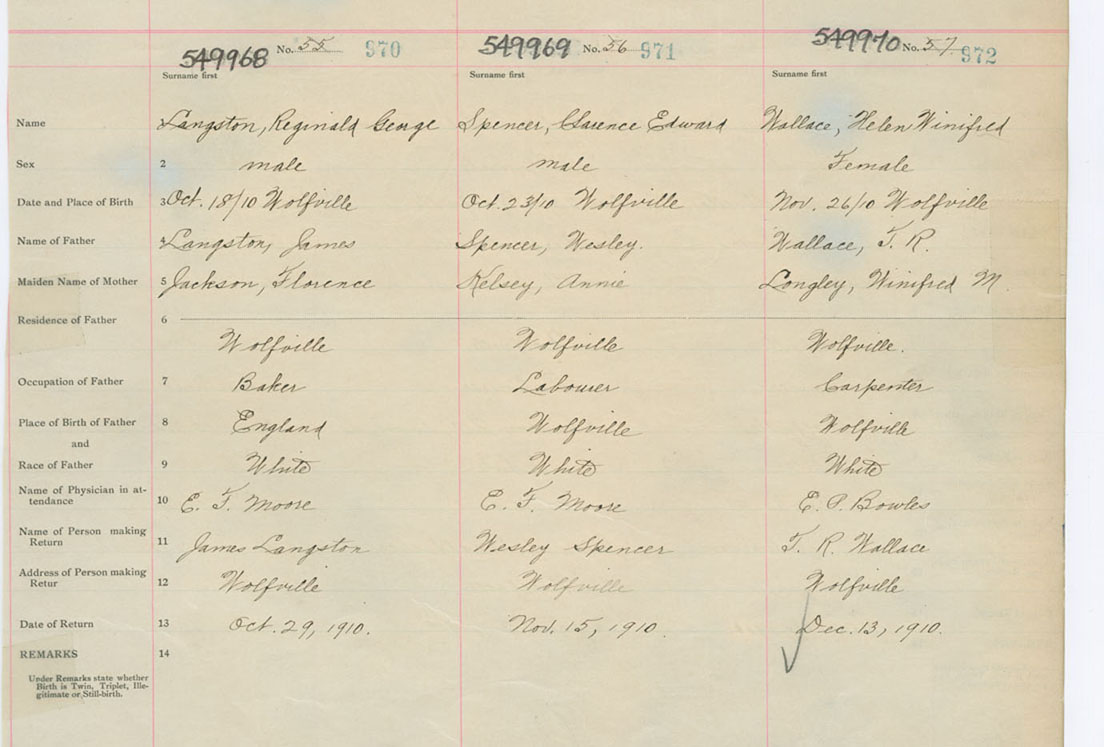 549968 No. 55 970 549969 No. 56 971 549970 No. 57 972
Surname first Surname first Surname first
Name 1 Langston, Reginald George Spencer, Clarence Edward Wallace, Helen Winifred
Sex 2 male male Female
Date and Place of Birth 3 Oct. 18/10 Wolfville Oct. 23/10 Wolfville Nov. 26/10 Wolfville
Name of Father 4 Langston, James Spencer, Wesley. Wallace, T. R.
Maiden Name of Mother 5 Jackson, Florence Kelsey, Annie Longley, Winifred M.
Residence of Father 6
Wolfville Wolfville Wolfville.
Occupation of Father 7 Baker Labourer Carpenter
Place of Birth of Father 8 England Wolfville Wolfville
and
Race of Father 9 White White White
Name of Physician in at-
tendance 10 E. F. Moore E. F. Moore E. P. Bowles
Name of Person making
Return 11 James Langston Wesley Spencer T. R. Wallace
Address of Person making
Retur 12 Wolfville Wolfville Wolfville
Date of Return 13 Oct. 29, 1910. Nov. 15, 1910. Dec. 13, 1910.
REMARKS 14
Under Remarks state whether
Birth is Twin, Triplet, Ille-
gitimate or Still-birth.